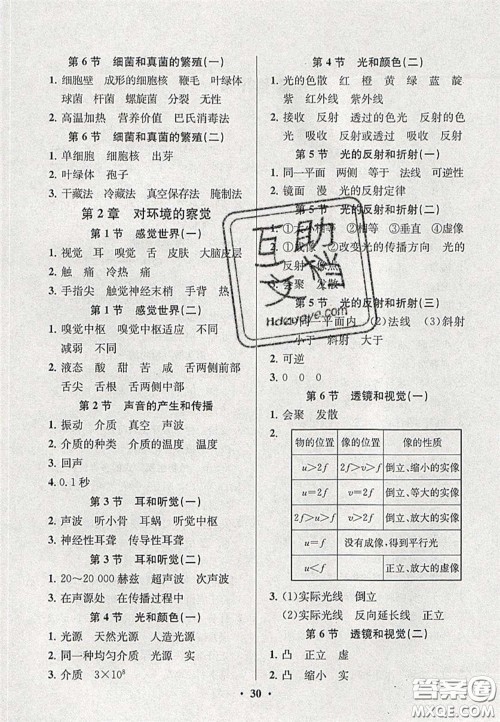 第6节　细菌和真菌的繁殖(一)
1. 细胞壁　成形的细胞核　鞭毛　叶绿体
球菌　杆菌　螺旋菌　分裂　无性
2. 高温加热　营养价值　巴氏消毒法
第6节　细菌和真菌的繁殖(二)
1. 单细胞　细胞核　出芽
2. 叶绿体　孢子
3. 干藏法　冷藏法　真空保存法　腌制法
第2章　对环境的察觉
第1节　感觉世界(一)
1. 视觉　耳　嗅觉　舌　皮肤　大脑皮层
2. 触　痛　冷热　痛
3. 手指尖　触觉神经末梢　手背　热
第1节　感觉世界(二)
1. 嗅觉中枢　嗅觉中枢适应　不同
减弱　不同
2. 液态　酸　甜　苦　咸　舌两侧前部
舌尖　舌根　舌两侧中部
第2节　声音的产生和传播
1. 振动　介质　真空　声波
2. 介质的种类　介质的温度　温度
3. 回声
4. 0.1秒
第3节　耳和听觉(一)
2. 声波　听小骨　耳蜗　听觉中枢
3. 神经性耳聋　传导性耳聋
第3节　耳和听觉(二)
1. 20～20 000赫兹　超声波　次声波
3. 在声源处　在传播过程中
第4节　光和颜色(一)
1. 光源　天然光源　人造光源
2. 同一种均匀介质　光线
3. 介质　3×10⁸
第4节　光和颜色(二)
1. 光的色散　红　橙　黄　绿　蓝　靛
紫　红外线　紫外线
2. 吸收　反射　透过的色光　反射的色
光　吸收　反射或透过　吸收　反射
第5节　光的反射和折射(一)
1. 同一平面　两侧　等于　法线　可逆性
2. 镜面　漫　光的反射
第5节　光的反射和折射(二)
1. ①大小相等　②相等　③垂直　④虚像
2. ①成像　②改变光的传播方向　光
的反射
3. 会聚　发散
第5节　光的反射和折射(三)
1. 同一平面内　(2)法线　(3)斜射
小于　斜射　大于
2. 可逆
3. 0　0　0
第6节　透镜和视觉(一)
1. 会聚　发散
2.
物的位置　像的位置　像的性质
u>2f　2f>v>f　倒立、缩小的实像
u=2f　v=2f　倒立、等大的实像
2f>u>f　v>2f　倒立、放大的实像
u=f　没有成像,得到平行光
u<f　正立、放大的虚像
3. (1)实际光线　倒立
(2)实际光线　反向延长线　正立
第6节　透镜和视觉(二)
1. 凸　正立　虚
2. 凸　缩小　实
· 30 ·
互助
文档
Hdzuoye.com
答案圈
MXQE.COM